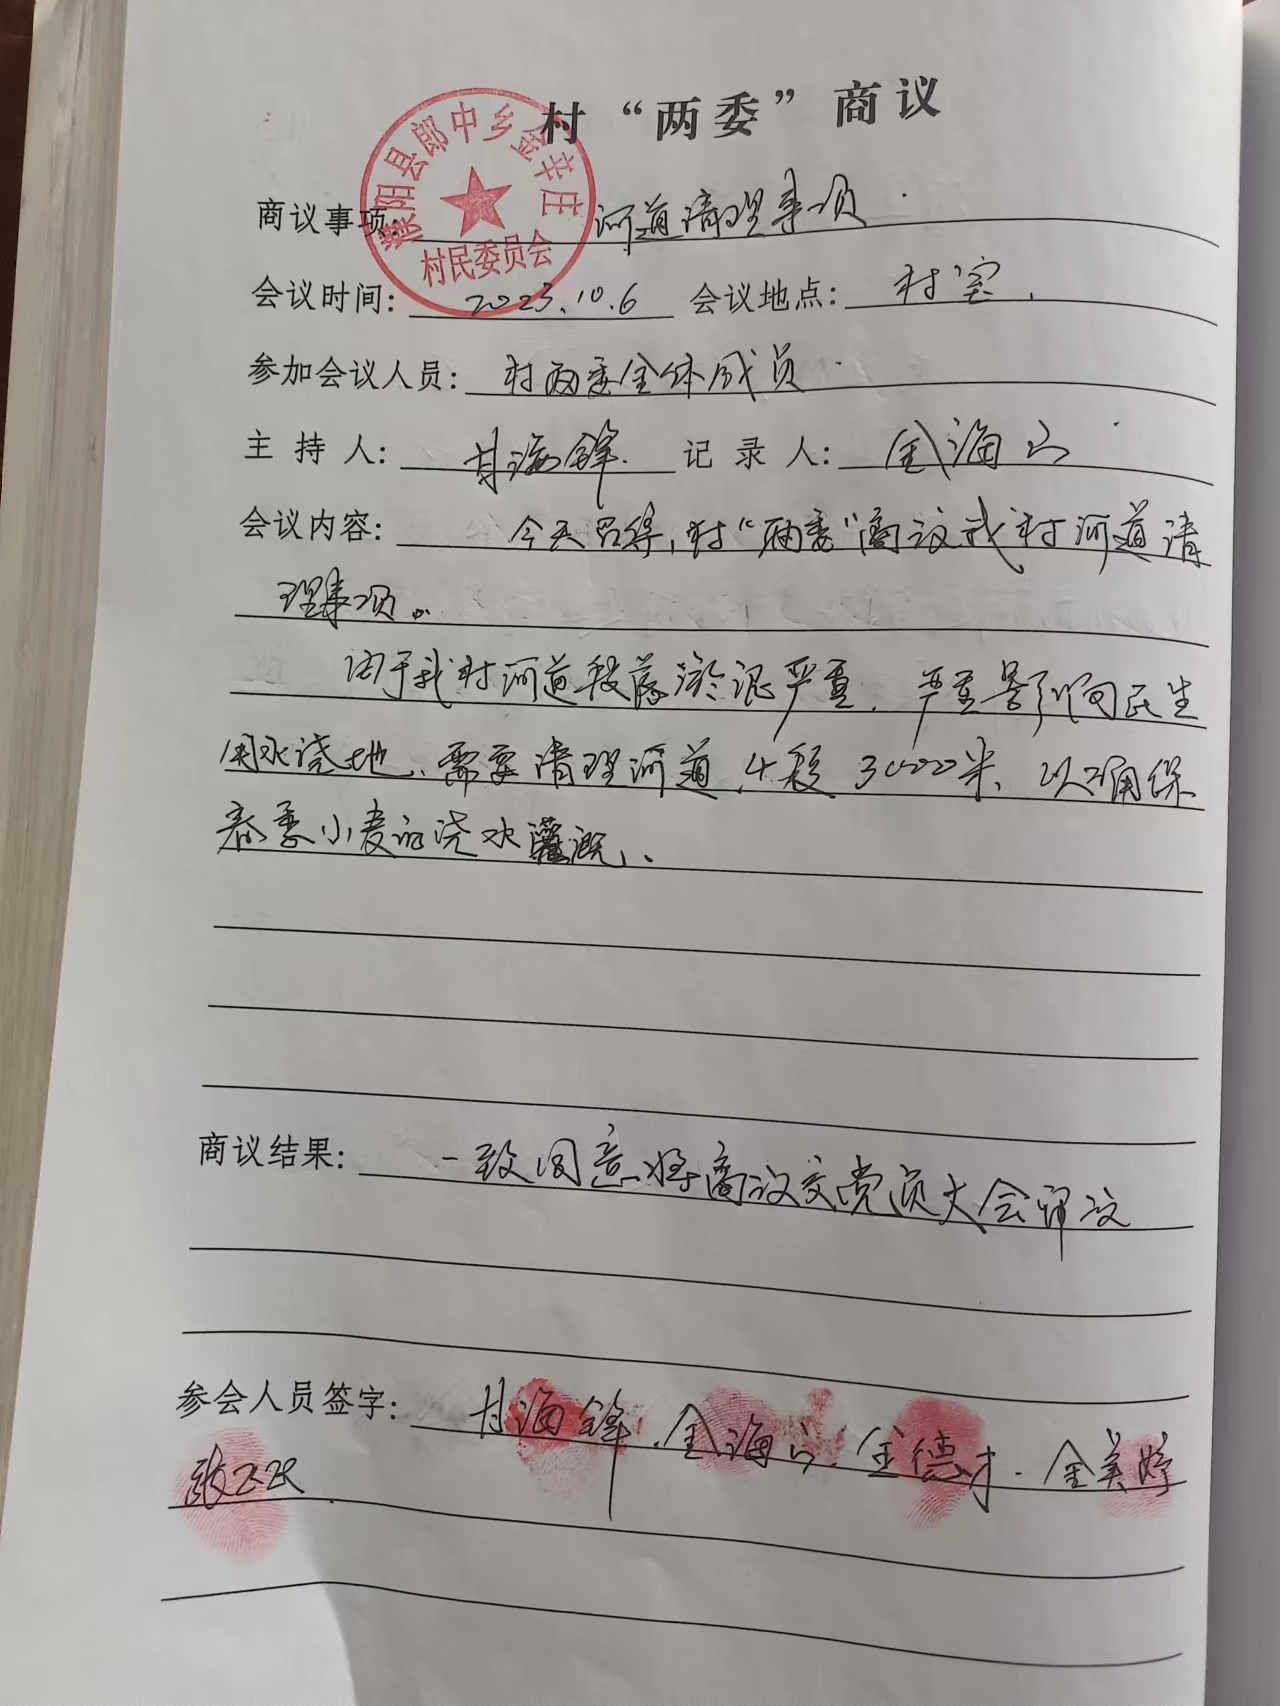 村“两委”商议
濮阳县郎中乡金辛庄
村民委员会
商议事项: 河道清理事项
会议时间: 2023.10.6 会议地点: 村室
参加会议人员: 村两委全体成员
主持人: 甘海锋 记录人: 金海山
会议内容: 今天召集,村“两委”商议我村河道清
理事项。
由于我村河道段落淤泥严重,严重影响民生
用水浇地、需要清理河道4段3000米、以确保
春季小麦的浇水灌溉、
商议结果: 一致同意将商议交党员大会审议
参会人员签字: 甘海锋、金海山、金德才、金美婷